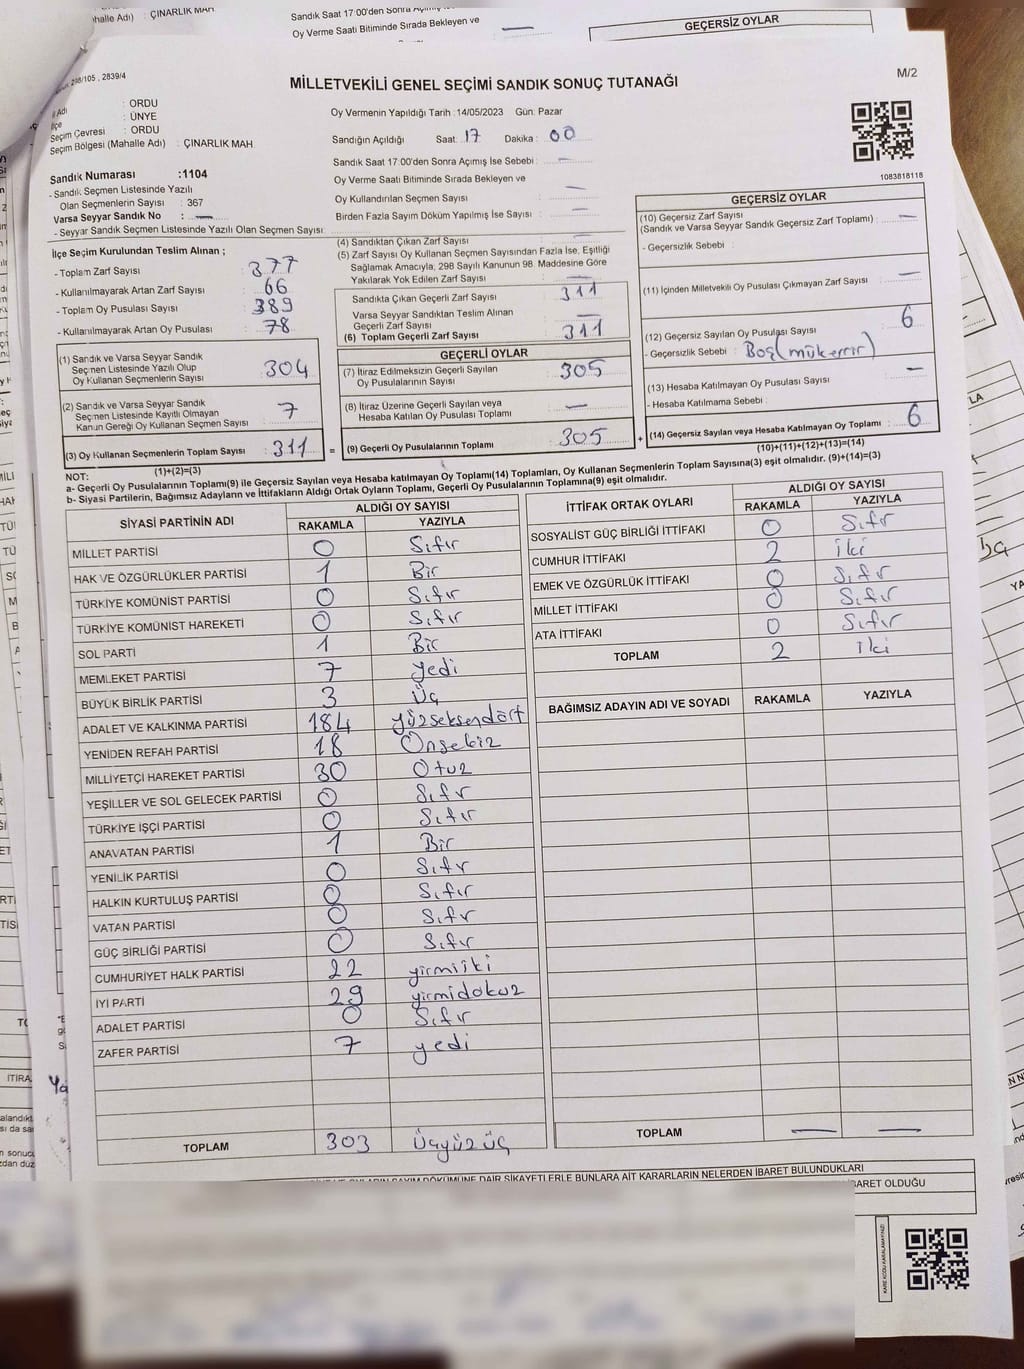 ÇINARLIK MAH
Sandık Saat 17:00'den Sonra
Oy Verme Saati Bitiminde Sırada Bekleyen ve
GEÇERSİZ OYLAR
298/105 , 2839/4
MİLLETVEKİLİ GENEL SEÇİMİ SANDIK SONUÇ TUTANAĞI
M/2
: ORDU
İlçe : ÜNYE
Seçim Çevresi : ORDU
Seçim Bölgesi (Mahalle Adı) : ÇINARLIK MAH
Oy Vermenin Yapıldığı Tarih :14/05/2023 Gün: Pazar
Sandığın Açıldığı Saat: 17 Dakika : 00
Sandık Saat 17:00'den Sonra Açımış İse Sebebi : —
Oy Verme Saati Bitiminde Sırada Bekleyen ve
Oy Kullandırılan Seçmen Sayısı —
Birden Fazla Sayım Döküm Yapılmış İse Sayısı : —
1083818118
Sandık Numarası :1104
- Sandık Seçmen Listesinde Yazılı
Olan Seçmenlerin Sayısı : 367
Varsa Seyyar Sandık No : —
- Seyyar Sandık Seçmen Listesinde Yazılı Olan Seçmen Sayısı:
İlçe Seçim Kurulundan Teslim Alınan ;
- Toplam Zarf Sayısı : 377
- Kullanılmayarak Artan Zarf Sayısı : 66
- Toplam Oy Pusulası Sayısı : 389
- Kullanılmayarak Artan Oy Pusulası : 78
(1) Sandık ve Varsa Seyyar Sandık
Seçmen Listesinde Yazılı Olup
Oy Kullanan Seçmenlerin Sayısı : 304
(2) Sandık ve Varsa Seyyar Sandık
Seçmen Listesinde Kayıtlı Olmayan
Kanun Gereği Oy Kullanan Seçmen Sayısı : 7
(3) Oy Kullanan Seçmenlerin Toplam Sayısı : 311
(1)+(2)=(3)
(4) Sandıktan Çıkan Zarf Sayısı —
(5) Zarf Sayısı Oy Kullanan Seçmen Sayısından Fazla İse, Eşitliği
Sağlamak Amacıyla, 298 Sayılı Kanunun 98. Maddesine Göre
Yakılarak Yok Edilen Zarf Sayısı : —
Sandıkta Çıkan Geçerli Zarf Sayısı : 311
Varsa Seyyar Sandıktan Teslim Alınan
Geçerli Zarf Sayısı : —
(6) Toplam Geçerli Zarf Sayısı : 311
GEÇERLİ OYLAR
(7) İtiraz Edilmeksizin Geçerli Sayılan
Oy Pusulalarının Sayısı : 305
(8) İtiraz Üzerine Geçerli Sayılan veya
Hesaba Katılan Oy Pusulası Toplamı : —
= (9) Geçerli Oy Pusulalarının Toplamı : 305
GEÇERSİZ OYLAR
(10) Geçersiz Zarf Sayısı
(Sandık ve Varsa Seyyar Sandık Geçersiz Zarf Toplamı) : —
- Geçersizlik Sebebi :
(11) İçinden Milletvekili Oy Pusulası Çıkmayan Zarf Sayısı : —
(12) Geçersiz Sayılan Oy Pusulası Sayısı : 6
- Geçersizlik Sebebi : Boş (mükerrir)
(13) Hesaba Katılmayan Oy Pusulası Sayısı : —
- Hesaba Katılmama Sebebi :
+ (14) Geçersiz Sayılan veya Hesaba Katılmayan Oy Toplamı : 6
(10)+(11)+(12)+(13)=(14)
NOT:
a- Geçerli Oy Pusulalarının Toplamı(9) ile Geçersiz Sayılan veya Hesaba katılmayan Oy Toplamı(14) Toplamları, Oy Kullanan Seçmenlerin Toplam Sayısına(3) eşit olmalıdır. (9)+(14)=(3)
b- Siyasi Partilerin, Bağımsız Adayların ve İttifakların Aldığı Ortak Oyların Toplamı, Geçerli Oy Pusulalarının Toplamına(9) eşit olmalıdır.
SİYASİ PARTİNİN ADI ALDIĞI OY SAYISI
RAKAMLA YAZIYLA
MİLLET PARTİSİ 0 Sıfır
HAK VE ÖZGÜRLÜKLER PARTİSİ 1 Bir
TÜRKİYE KOMÜNİST PARTİSİ 0 Sıfır
TÜRKİYE KOMÜNİST HAREKETİ 0 Sıfır
SOL PARTİ 1 Bir
MEMLEKET PARTİSİ 7 yedi
BÜYÜK BİRLİK PARTİSİ 3 Üç
ADALET VE KALKINMA PARTİSİ 184 yüzseksendört
YENİDEN REFAH PARTİSİ 18 Onsekiz
MİLLİYETÇİ HAREKET PARTİSİ 30 Otuz
YEŞİLLER VE SOL GELECEK PARTİSİ 0 Sıfır
TÜRKİYE İŞÇİ PARTİSİ 0 Sıfır
ANAVATAN PARTİSİ 1 Bir
YENİLİK PARTİSİ 0 Sıfır
HALKIN KURTULUŞ PARTİSİ 0 Sıfır
VATAN PARTİSİ 0 Sıfır
GÜÇ BİRLİĞİ PARTİSİ 0 Sıfır
CUMHURİYET HALK PARTİSİ 22 yirmiiki
İYİ PARTİ 29 yirmidokuz
ADALET PARTİSİ 0 Sıfır
ZAFER PARTİSİ 7 yedi
TOPLAM 303 Üçyüz üç
İTTİFAK ORTAK OYLARI ALDIĞI OY SAYISI
RAKAMLA YAZIYLA
SOSYALİST GÜÇ BİRLİĞİ İTTİFAKI 0 Sıfır
CUMHUR İTTİFAKI 2 iki
EMEK VE ÖZGÜRLÜK İTTİFAKI 0 Sıfır
MİLLET İTTİFAKI 0 Sıfır
ATA İTTİFAKI 0 Sıfır
TOPLAM 2 iki
BAĞIMSIZ ADAYIN ADI VE SOYADI RAKAMLA YAZIYLA
TOPLAM — —
DÖKÜMÜNE DAİR ŞİKAYETLERLE BUNLARA AİT KARARLARIN NELERDEN İBARET BULUNDUKLARI
İBARET OLDUĞU